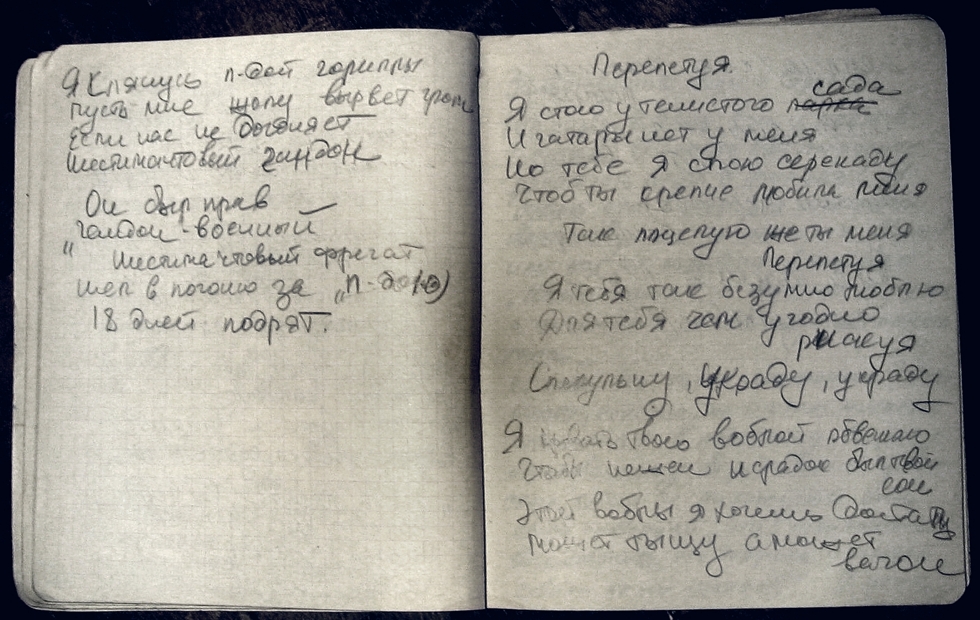 Я клянусь п-дой гориллы
пусть мне жопу вырвет гром
Если нас не догоняет
шестимачтовый гандон
Он был прав
гандон - военный
" шестимачтовый фрегат
шел в погоню за „п-до
18 дней подрят.
Перепетуя.
Я стою у тенистого парка сада
И гитары нет у меня
Но тебе я спою серенаду
Чтоб ты крепче любила меня
Так поцелуй же ты меня
Перепетуя
Я тебя так безумно люблю
Для тебя чем угодно
рискуя
Спекульну, украду, украду
Я кровать твою воблой обвешаю
Чтобы нежен и сладок был твой
сон
Этой воблы я хочешь достану
может тыщу а может
вагон